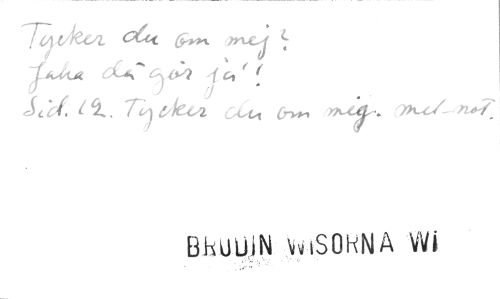 Tycker du om mej?
Jaha då gör ja'!
Sid. 12. Tycker du om mig. mel-not.
BRUDIN WISORNA WI